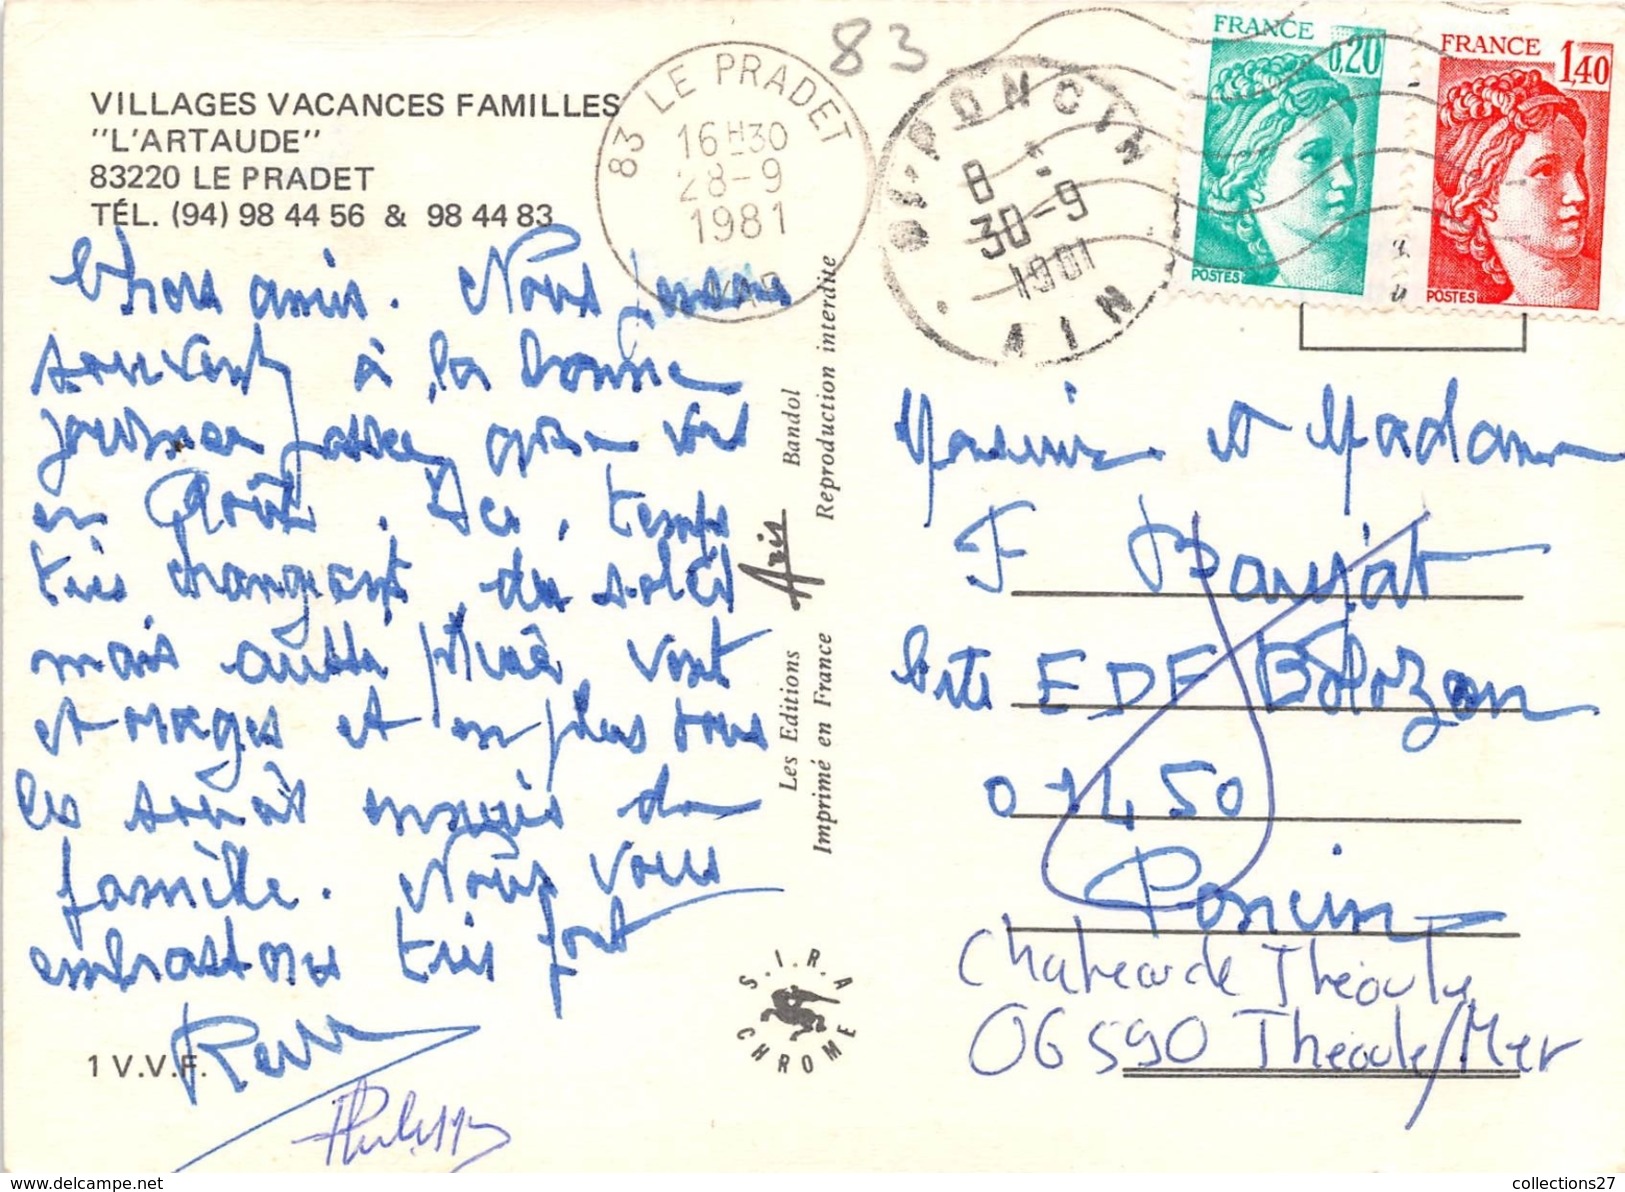 VILLAGES VACANCES FAMILLES
"L'ARTAUDE"
83220 LE PRADET
TÉL. (94) 98 44 56 & 98 44 83
Chers amis. Nous pensons
souvent à la bonne
journée passée avec vous
en Août. Ici, temps
très changeant, du soleil
mais aussi pluie, vent
et orages et en plus tous
les soucis
famille. Nous vous
embrassons très fort
1 V.V.F.
83 LE PRADET
16H30
28-9
1981
VAR
83
01-PONCIN
8
30-9
1981
AIN
FRANCE
0,20
POSTES
FRANCE
1,40
POSTES
Les Editions Aris Bandol
Imprimé en France Reproduction interdite
S.I.R.A
CHROME
Monsieur et Madame
F
Cité EDF Bolozon
01450
Poncin
Chateau de Théoule
06590 Théoule/Mer
collections27